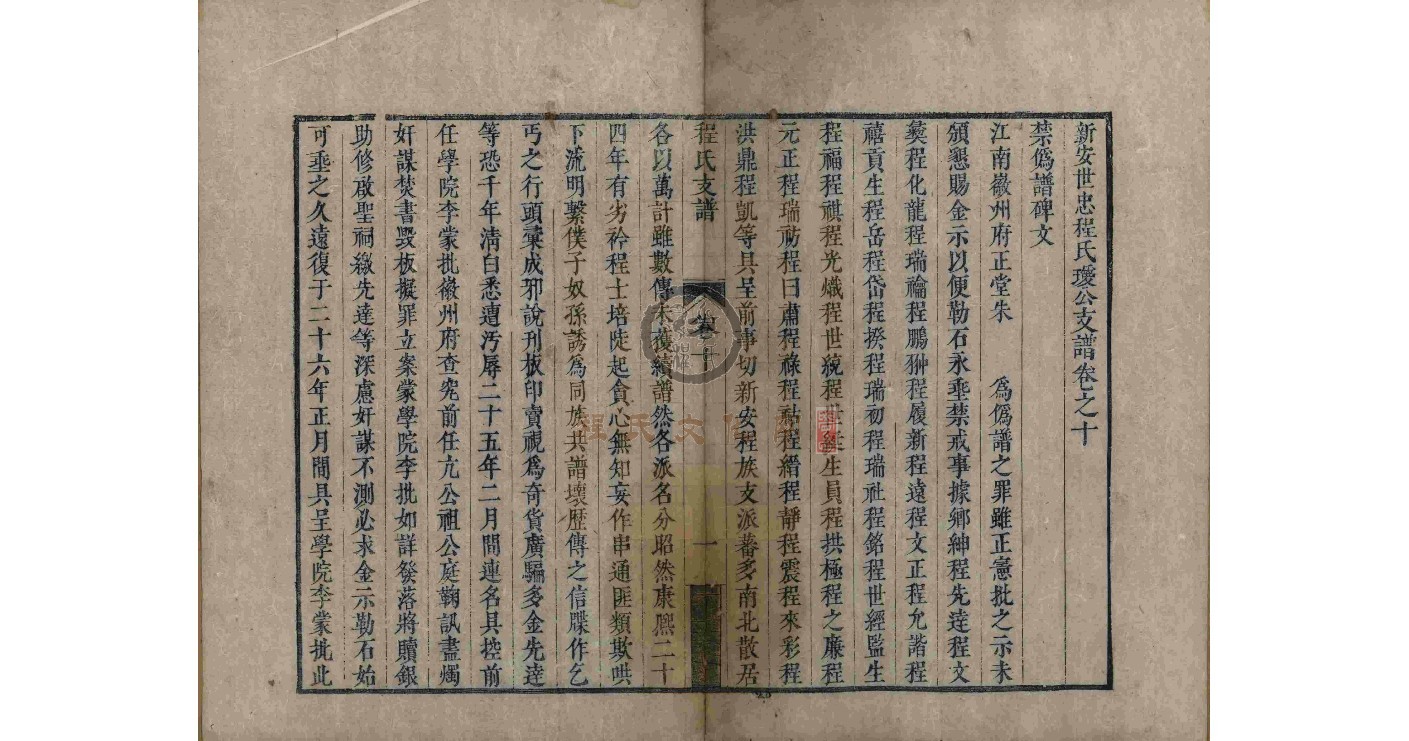 新安世忠程氏瓊公支譜卷之十
禁僞譜碑文
江南徽州府正堂朱 爲僞譜之罪雖正憲批之示未
頒懇賜金示以便勒石永垂禁戒事據鄉紳程先達程文
彜程化龍程瑞禴程鵬翀程履新程遠程文正程允諧程
禧貢生程岳程岱程揆程瑞初程瑞社程銘程世經監生
程福程祺程光熾程世綂程世 生員程拱極程之廉程
元正程瑞祊程曰肅程祿程 程縉程靜程震程來彩程
洪鼎程凱等具呈前事切新安程族支派蕃多南北散居
程氏支譜 卷十 一
各以萬計雖數傳未獲續譜然各派名分昭然康熙二十
四年有劣衿程士培陡起貪心無知妄作串通匪類欺哄
下流明繫僕子奴孫誘爲同族共譜壞歷傳之信牒作乞
丐之行頭彚成邪說刋板印賣視爲奇貨廣騙多金先達
等恐千年清白悉遭汚辱二十五年二月間連名具控前
任學院李蒙批徽州府查究前任亢公祖公庭鞠訊盡燭
奸謀焚書毀板擬罪立案蒙學院李批如詳發落將贖銀
助修啟聖祠繳先達等深慮奸謀不測必求金示勒石始
可垂之久遠復于二十六年正月間具呈學院李蒙批此
程氏文化